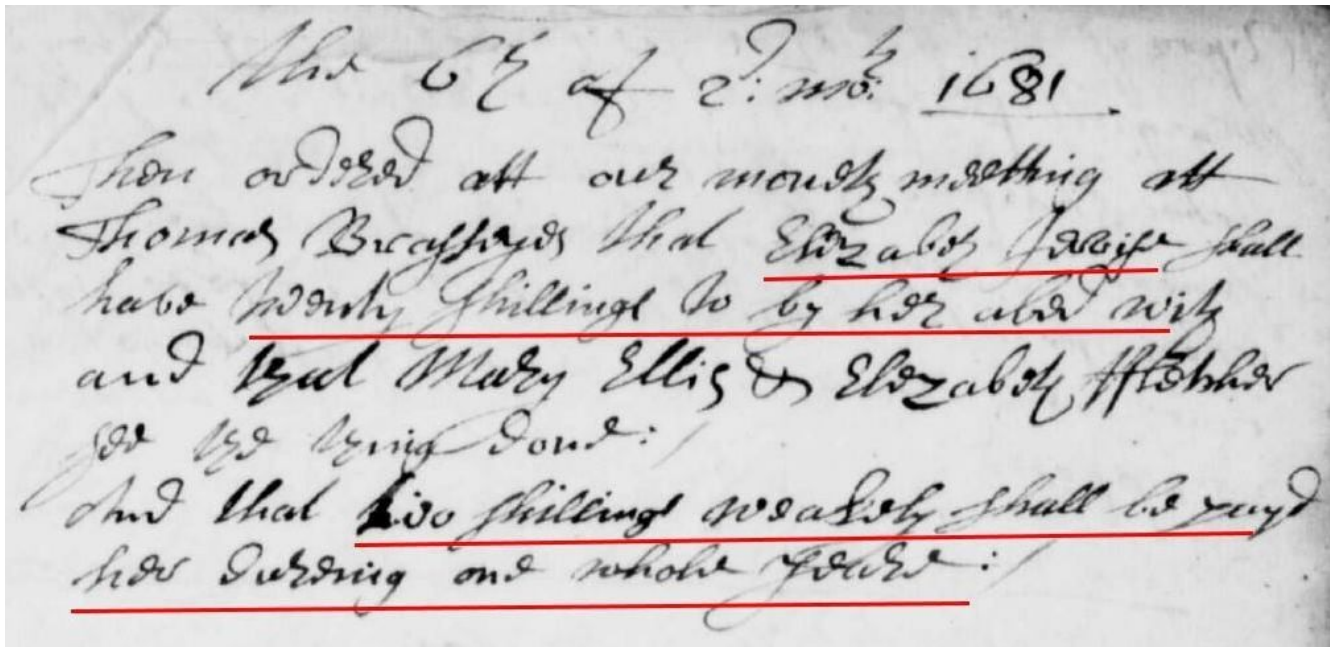 the 6th of 2d: mo:th 1681
Then ordered att our moneth meetting att
Thomas Brasseyes that Elizabeth Jervise shall
have twenty shillings to by her abed with
and that Mary Ellis & Elizabeth ffletcher
see the thing done:/
And that two shillings weakely shall be payd
her dureing one whole yeare:/